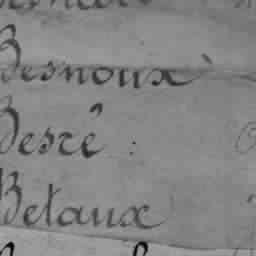 Besnoux
Besrê :
Betaux